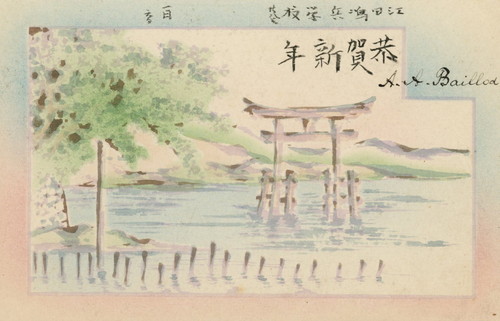 江田嶋兵学校
恭賀新年
A. A. Baillod